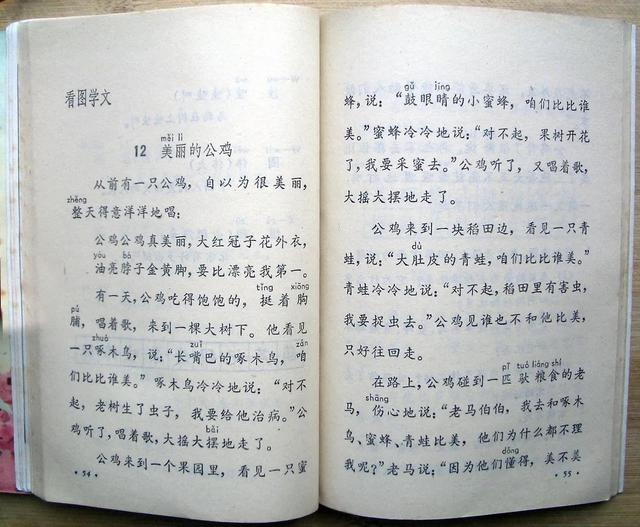 看图学文
měi lì
12 美丽的公鸡
从前有一只公鸡，自以为很美丽，
zhěng
整天得意洋洋地唱：
公鸡公鸡真美丽，大红冠子花外衣，
yóu bó
油亮脖子金黄脚，要比漂亮我第一。
tǐng xiōng
有一天，公鸡吃得饱饱的，挺着胸
pú
脯，唱着歌，来到一棵大树下。他看见
zhuó zuǐ zán
一只啄木鸟，说：“长嘴巴的啄木鸟，咱
们比比谁美。”啄木鸟冷冷地说：“对不
起，老树生了虫子，我要给他治病。”公
bǎi
鸡听了，唱着歌，大摇大摆地走了。
公鸡来到一个果园里，看见一只蜜
· 54 ·
gǔ jīng
蜂，说：“鼓眼睛的小蜜蜂，咱们比比谁
美。”蜜蜂冷冷地说：“对不起，果树开花
了，我要采蜜去。”公鸡听了，又唱着歌，
大摇大摆地走了。
公鸡来到一块稻田边，看见一只青
dù
蛙，说：“大肚皮的青蛙，咱们比比谁美。”
青蛙冷冷地说：“对不起，稻田里有害虫，
我要捉虫去。”公鸡见谁也不和他比美，
只好往回走。
pǐ tuó liáng shí
在路上，公鸡碰到一匹驮粮食的老
shāng
马，伤心地说：“老马伯伯，我去和啄木
鸟、蜜蜂、青蛙比美，他们为什么都不理
dǒng
我呢？”老马说：“因为他们懂得，美不美
· 55 ·